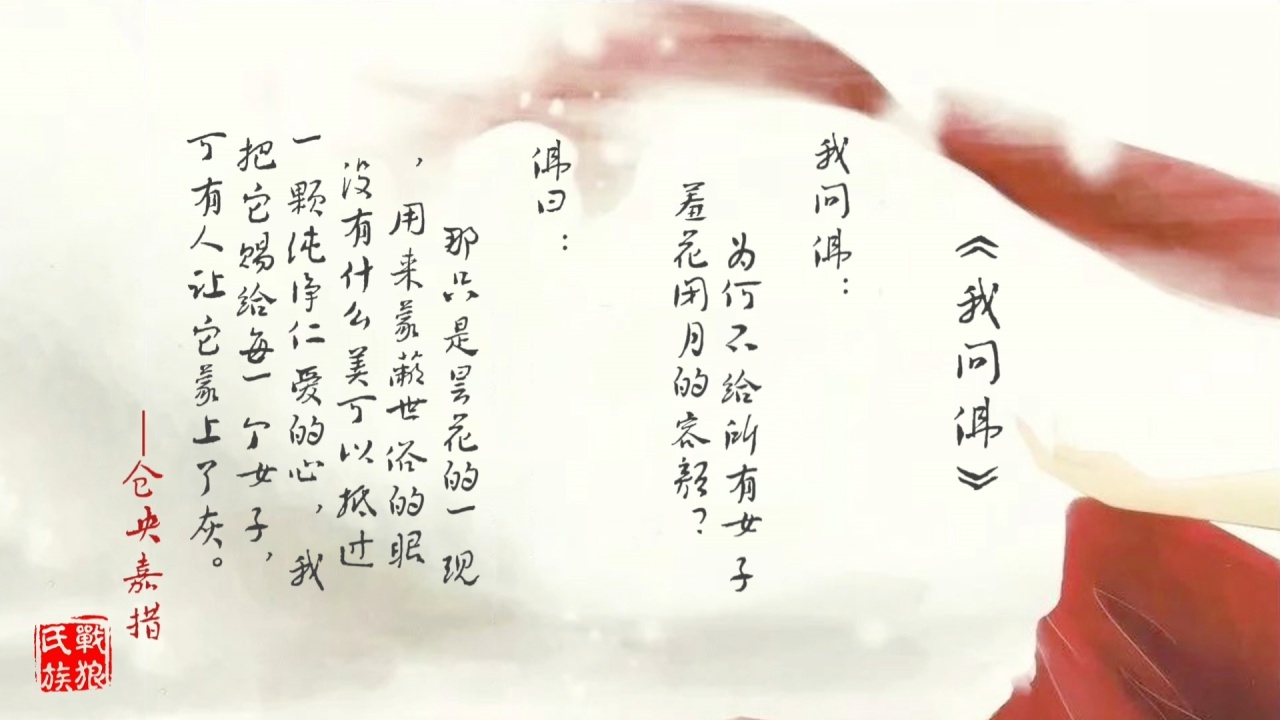 《我问佛》
我问佛：
为何不给所有女子
羞花闭月的容颜？
佛曰：
那只是昙花的一现
，用来蒙蔽世俗的眼
没有什么美可以抵过
一颗纯净仁爱的心，我
把它赐给每一个女子，
可有人让它蒙上了灰。
—仓央嘉措
戰狼
民族